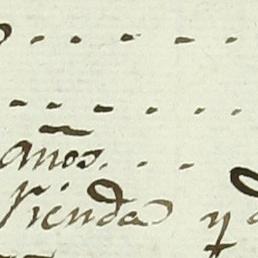 años. . . .
rienda y